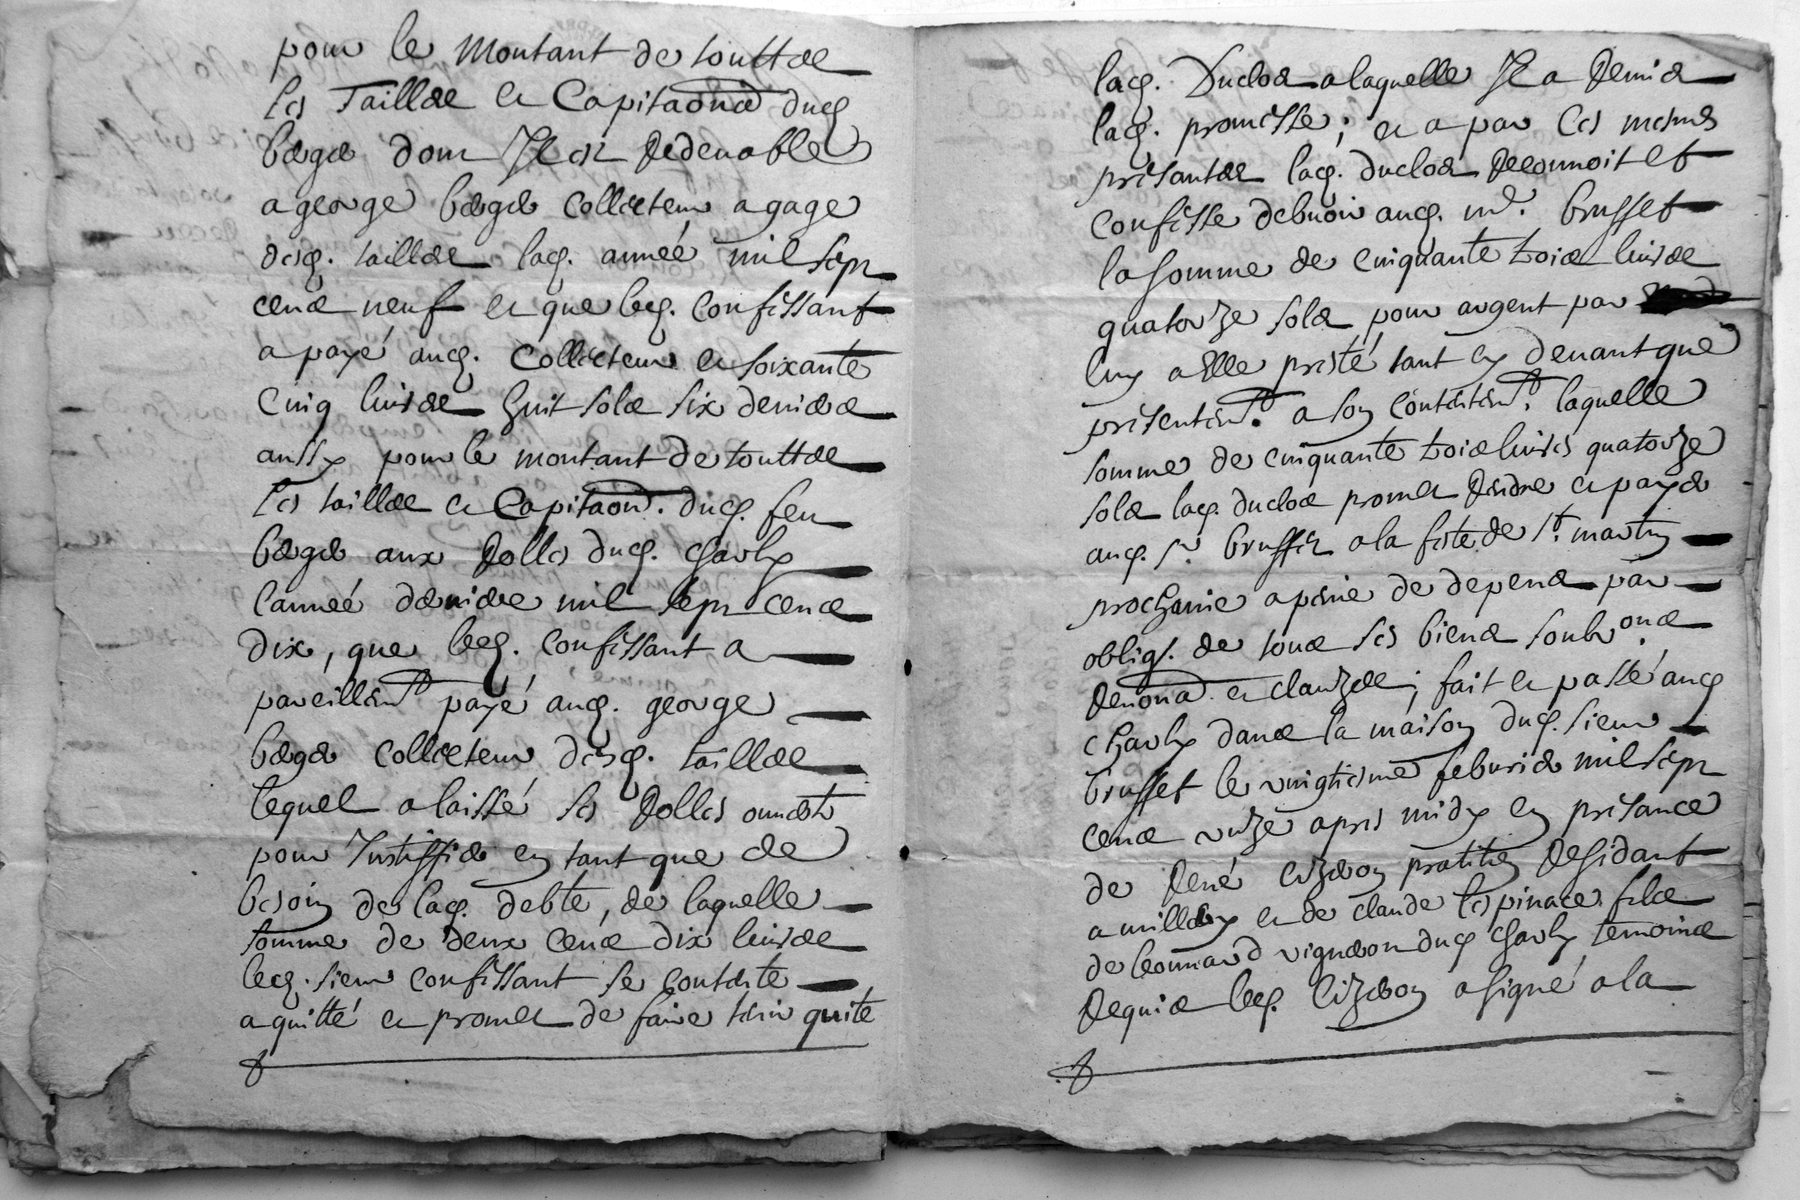 pour le montant de touttes
les Tailles et Capitaons dud.
berger dont Il est Redevable
a george berger Collecteur a gage
desd. tailles lad. année mil sept
cens neuf et que led. confessant
a payé aud. Collecteur et soixante
cinq livres huit sols six deniers
aussy pour le montant de touttes
les tailles et Capitaons. dud. feu
berger aux Rolles dud. Charly
l'année derniere mil sept cens
dix, que led. confessant a
pareillemt payé aud. george
berger collecteur desd. tailles
lequel a laissé ses Rolles ouverts
pour Justiffier en tant que de
besoin de lad. debte, de laquelle
somme de deux cens dix livres
led. sieur confessant se contente
a quitté et promet de faire tenir quite
lad. Duclos a laquelle Il a Remis
lad. promesse; et a par ces mesmes
presantes lad. duclos Reconnoit et
confesse debvoir aud. sr. brusset
la somme de cinquante trois livres
quatorze sols pour argent par
luy a Elle presté tant cy devant que
presentemt. a son contentemt. laquelle
somme de cinquante trois livres quatorze
sols lad. duclos promet Rendre et payer
aud. sr. brusset a la feste de st. martin
prochaine a peine de depens par
obligs. de tous ses biens soubmons
Renons. et clauzes; fait et passé aud
charly dans la maison dud. sieur
brusset le vingtiesme febvrier mil sept
cens unze apres midy en presance
de René cizeron pratitien Residant
a millery et de claude lespinace fils
de leonnard vigneron dud charly temoins
Requis led. cizeron a signé a la